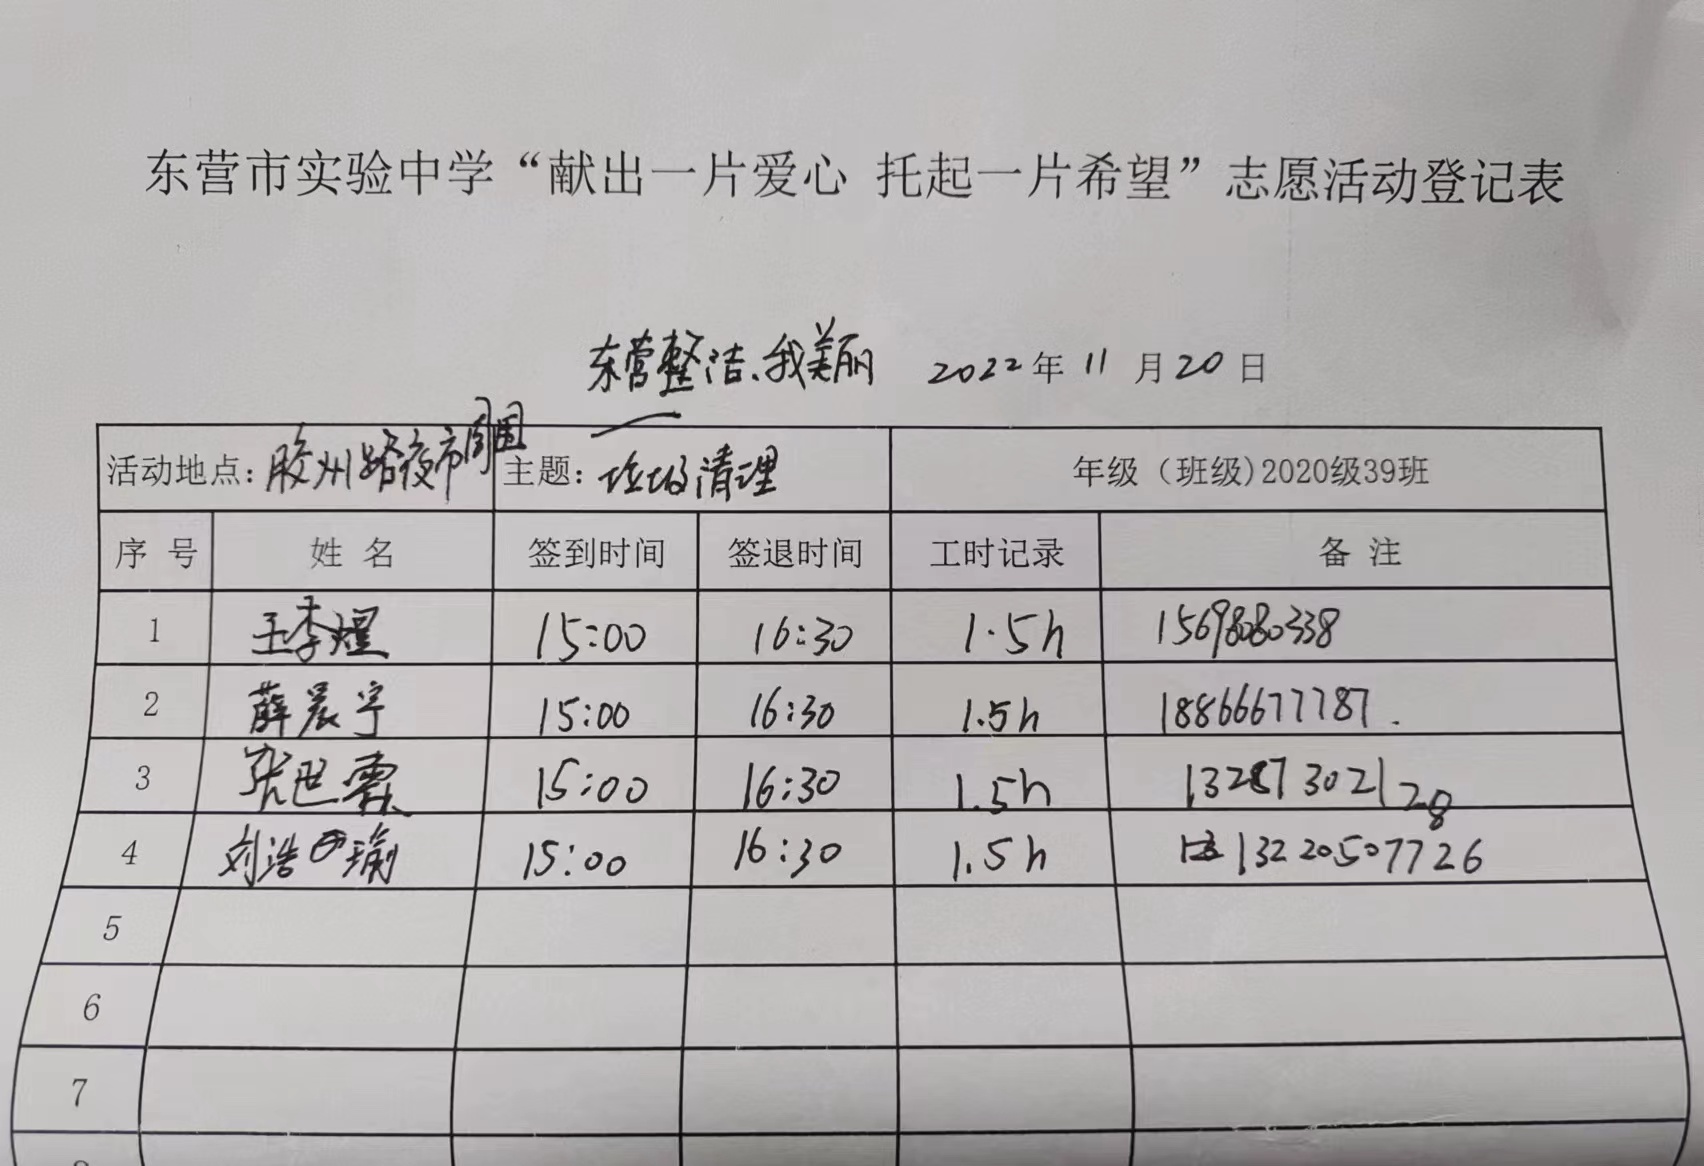 东营市实验中学“献出一片爱心 托起一片希望”志愿活动登记表
东营整洁、我美丽 2022年 11 月 20 日
活动地点：胶州路夜市周围 主题：垃圾清理 年级（班级)2020级39班
序 号 姓 名 签到时间 签退时间 工时记录 备 注
1 王李煜 15:00 16:30 1.5h 15698080338
2 薛晨宇 15:00 16:30 1.5h 18866677787.
3 张世霖 15:00 16:30 1.5h 13287302128
4 刘浩瑜 15:00 16:30 1.5h 13220507726
5
6
7